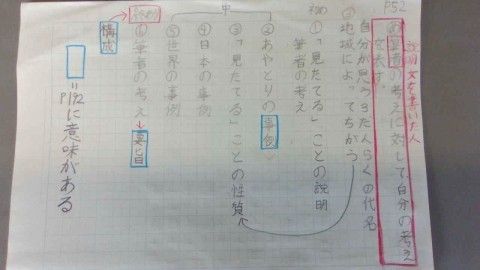 P52
説明文を書いた人
◎筆者の考えに対して、自分の考え
を表す。
自分が思う3だんらくの代名
◎地域によってちがう
初め
①「見たてる」ことの説明
筆者の考え
中
②あやとりの事例
③「見たてる」ことの性質
④日本の事例
⑤世界の事例
終わり
⑥筆者の考え→要旨
構成
=
P192に意味がある